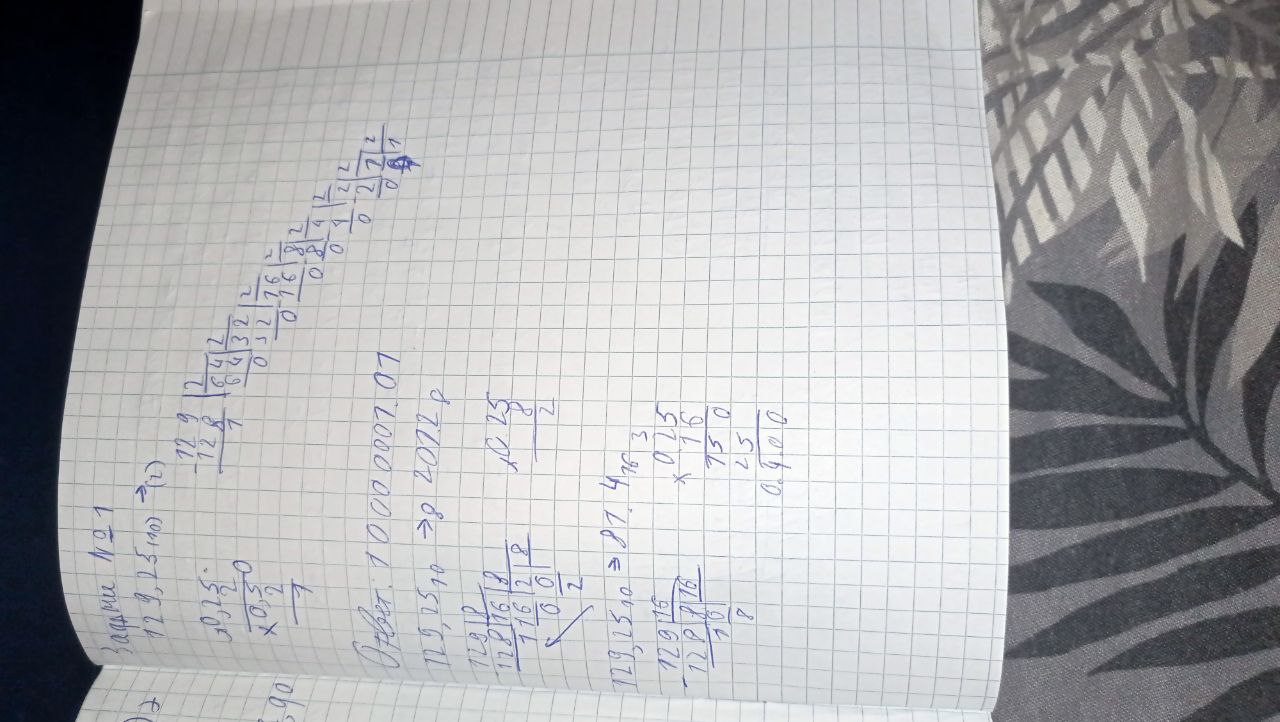 Задание № 1
129,25(10) → (2)
0,25
× 2
0,50
× 2
1
129 | 2
128 | 64 | 2
1 64 | 32 | 2
0 32 | 16 | 2
0 16 | 8 | 2
0 8 | 4 | 2
0 4 | 2 | 2
0 2 | 1 | 2
0 1
Ответ: 10000001.01
129,25₁₀ →₈ 201.2₈
129 | 8
128 | 16 | 8
1 16 | 2 | 8
0 0
2
× 0 25
8
2
129,25₁₀ → 81.4₁₆
- 129 | 16
128 | 8 | 16
1 0
8
3
025
× 16
150
25
0.400